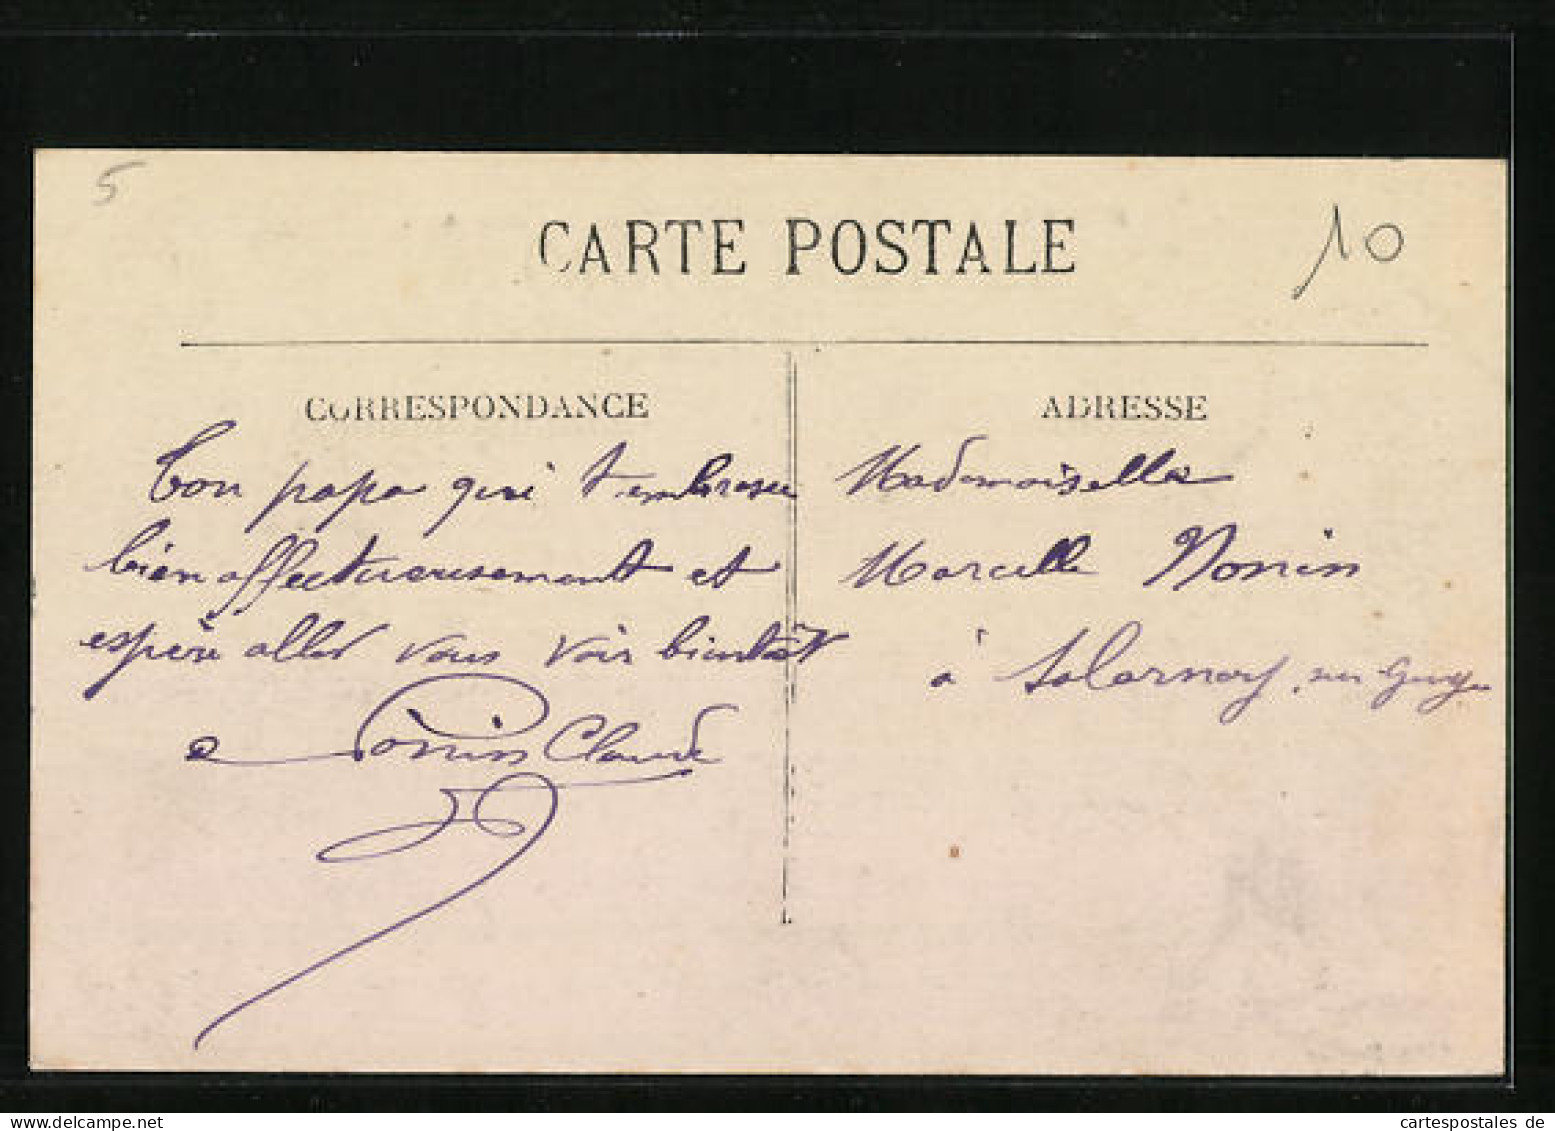 5
CARTE POSTALE
10
CORRESPONDANCE
Ton papa qui t'embrasse
bien affectueusement et
espère aller vous voir bientôt
Nonin Claude
ADRESSE
Mademoiselle
Marcelle Nonin
à Salornay sur Guye
cartespostales de